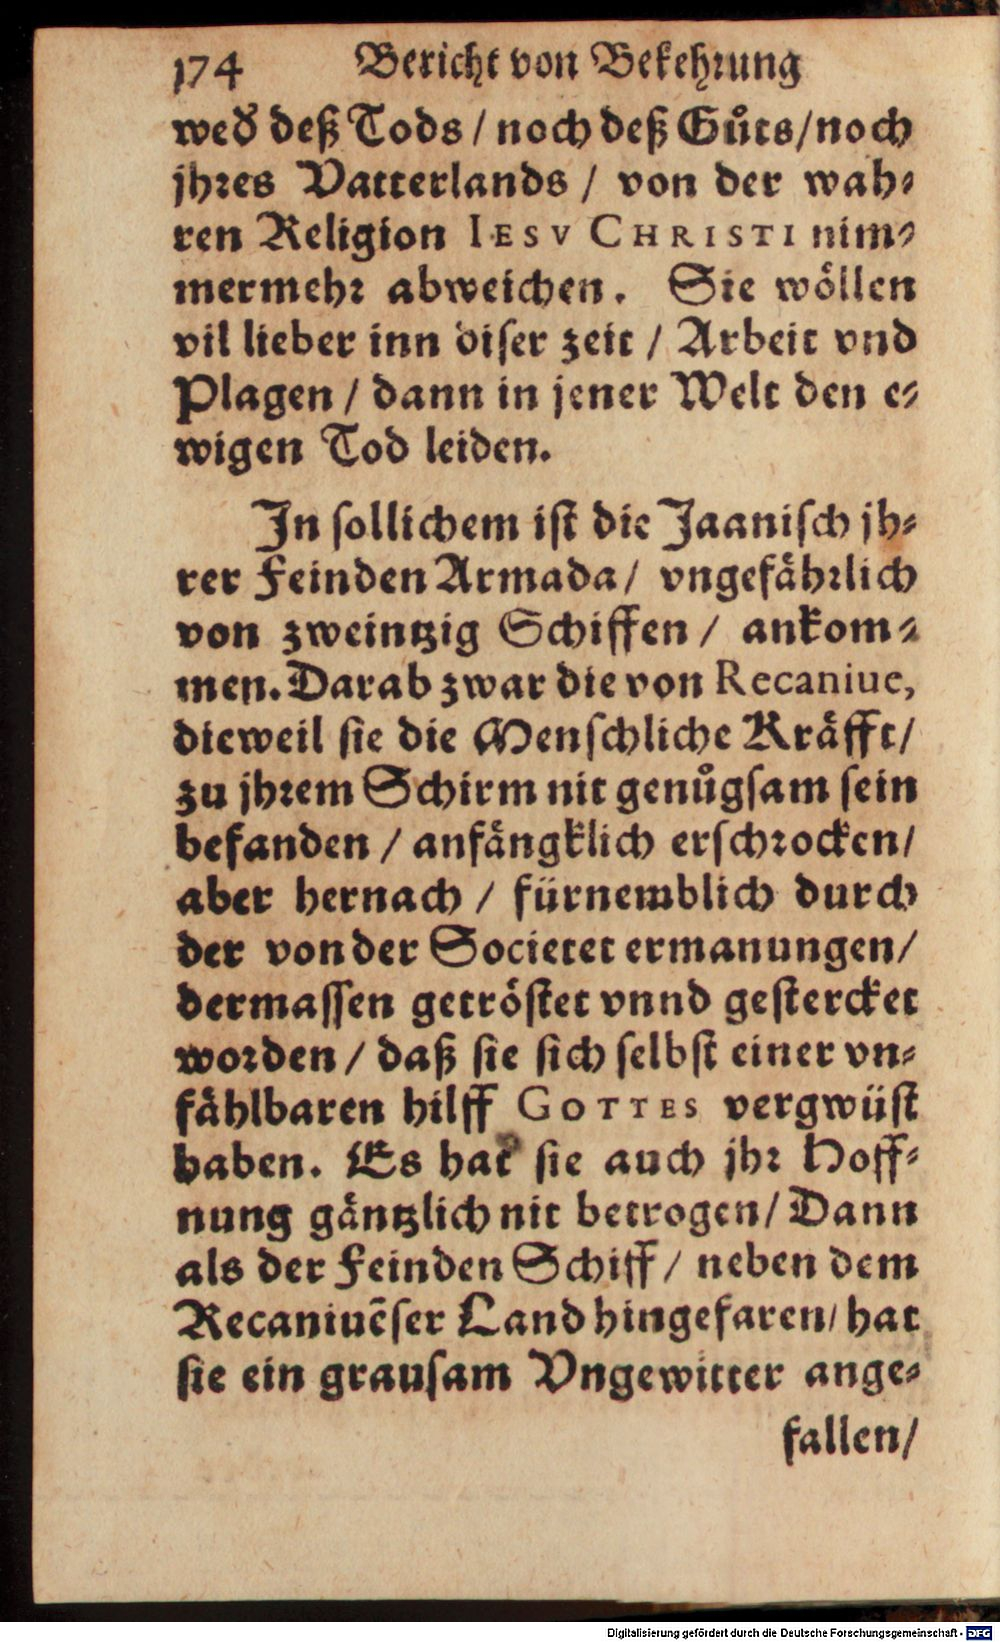 174 Bericht von Bekehrung
wed̄ deß Tods / noch deß Gůts / noch
jhres Vatterlands / von der wah-
ren Religion IESV CHRISTI nim-
mermehr abweichen. Sie wöllen
vil lieber inn diser zeit / Arbeit vnd
Plagen / dann in jener Welt den e-
wigen Tod leiden.
In sollichem ist die Jaanisch jh-
rer Feinden Armada / vngefährlich
von zweintzig Schiffen / ankom-
men. Darab zwar die von Recaniue,
dieweil sie die Menschliche Kräfft /
zu jhrem Schirm nit genůgsam sein
befanden / anfängklich erschrocken /
aber hernach / fürnemblich durch
der von der Societet ermanungen /
dermassen getröstet vnnd gestercket
worden / daß sie sich selbst einer vn-
fählbaren hilff GOTTES vergwüst
haben. Es hat sie auch jhr Hoff-
nung gäntzlich nit betrogen / Dann
als der Feinden Schiff / neben dem
Recaniuēser Land hingefaren / hat
sie ein grausam Vngewitter ange-
fallen /
Digitalisierung gefördert durch die Deutsche Forschungsgemeinschaft - DFG